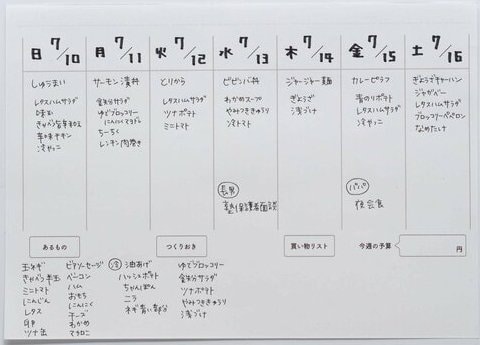 日 7/10
月 7/11
火 7/12
水 7/13
木 7/14
金 7/15
土 7/16
しゅうまい
レタスハムサラダ
味玉
冷やっこ
サーモン漬丼
ゆでブロッコリー
ちーちく
レンチン肉巻き
とりから
レタスハムサラダ
ツナポテト
ミニトマト
ビビンバ丼
わかめスープ
やみつききゅうり
冷トマト
長男
塾保護者面談
ジャージャー麺
ぎょうざ
浅づけ
カレーピラフ
青のりポテト
レタスハムサラダ
冷やっこ
パパ
夜会食
ぎょうざチャーハン
ジャガバター
レタスハムサラダ
ブロッコリーペペロン
なめたけ
あるもの
つくりおき
買い物リスト
今週の予算
円
玉ネギ
キャベツ半玉
ミニトマト
にんじん
レタス
卵
ツナ缶
ビアソーセージ
ベーコン
ハム
おもち
にんにく
チーズ
わかめ
マカロニ
冷 油あげ
ハッシュポテト
ちゃんぽん
ニラ
ネギ青い部分
ゆでブロッコリー
ツナポテト
やみつききゅうり
浅づけ